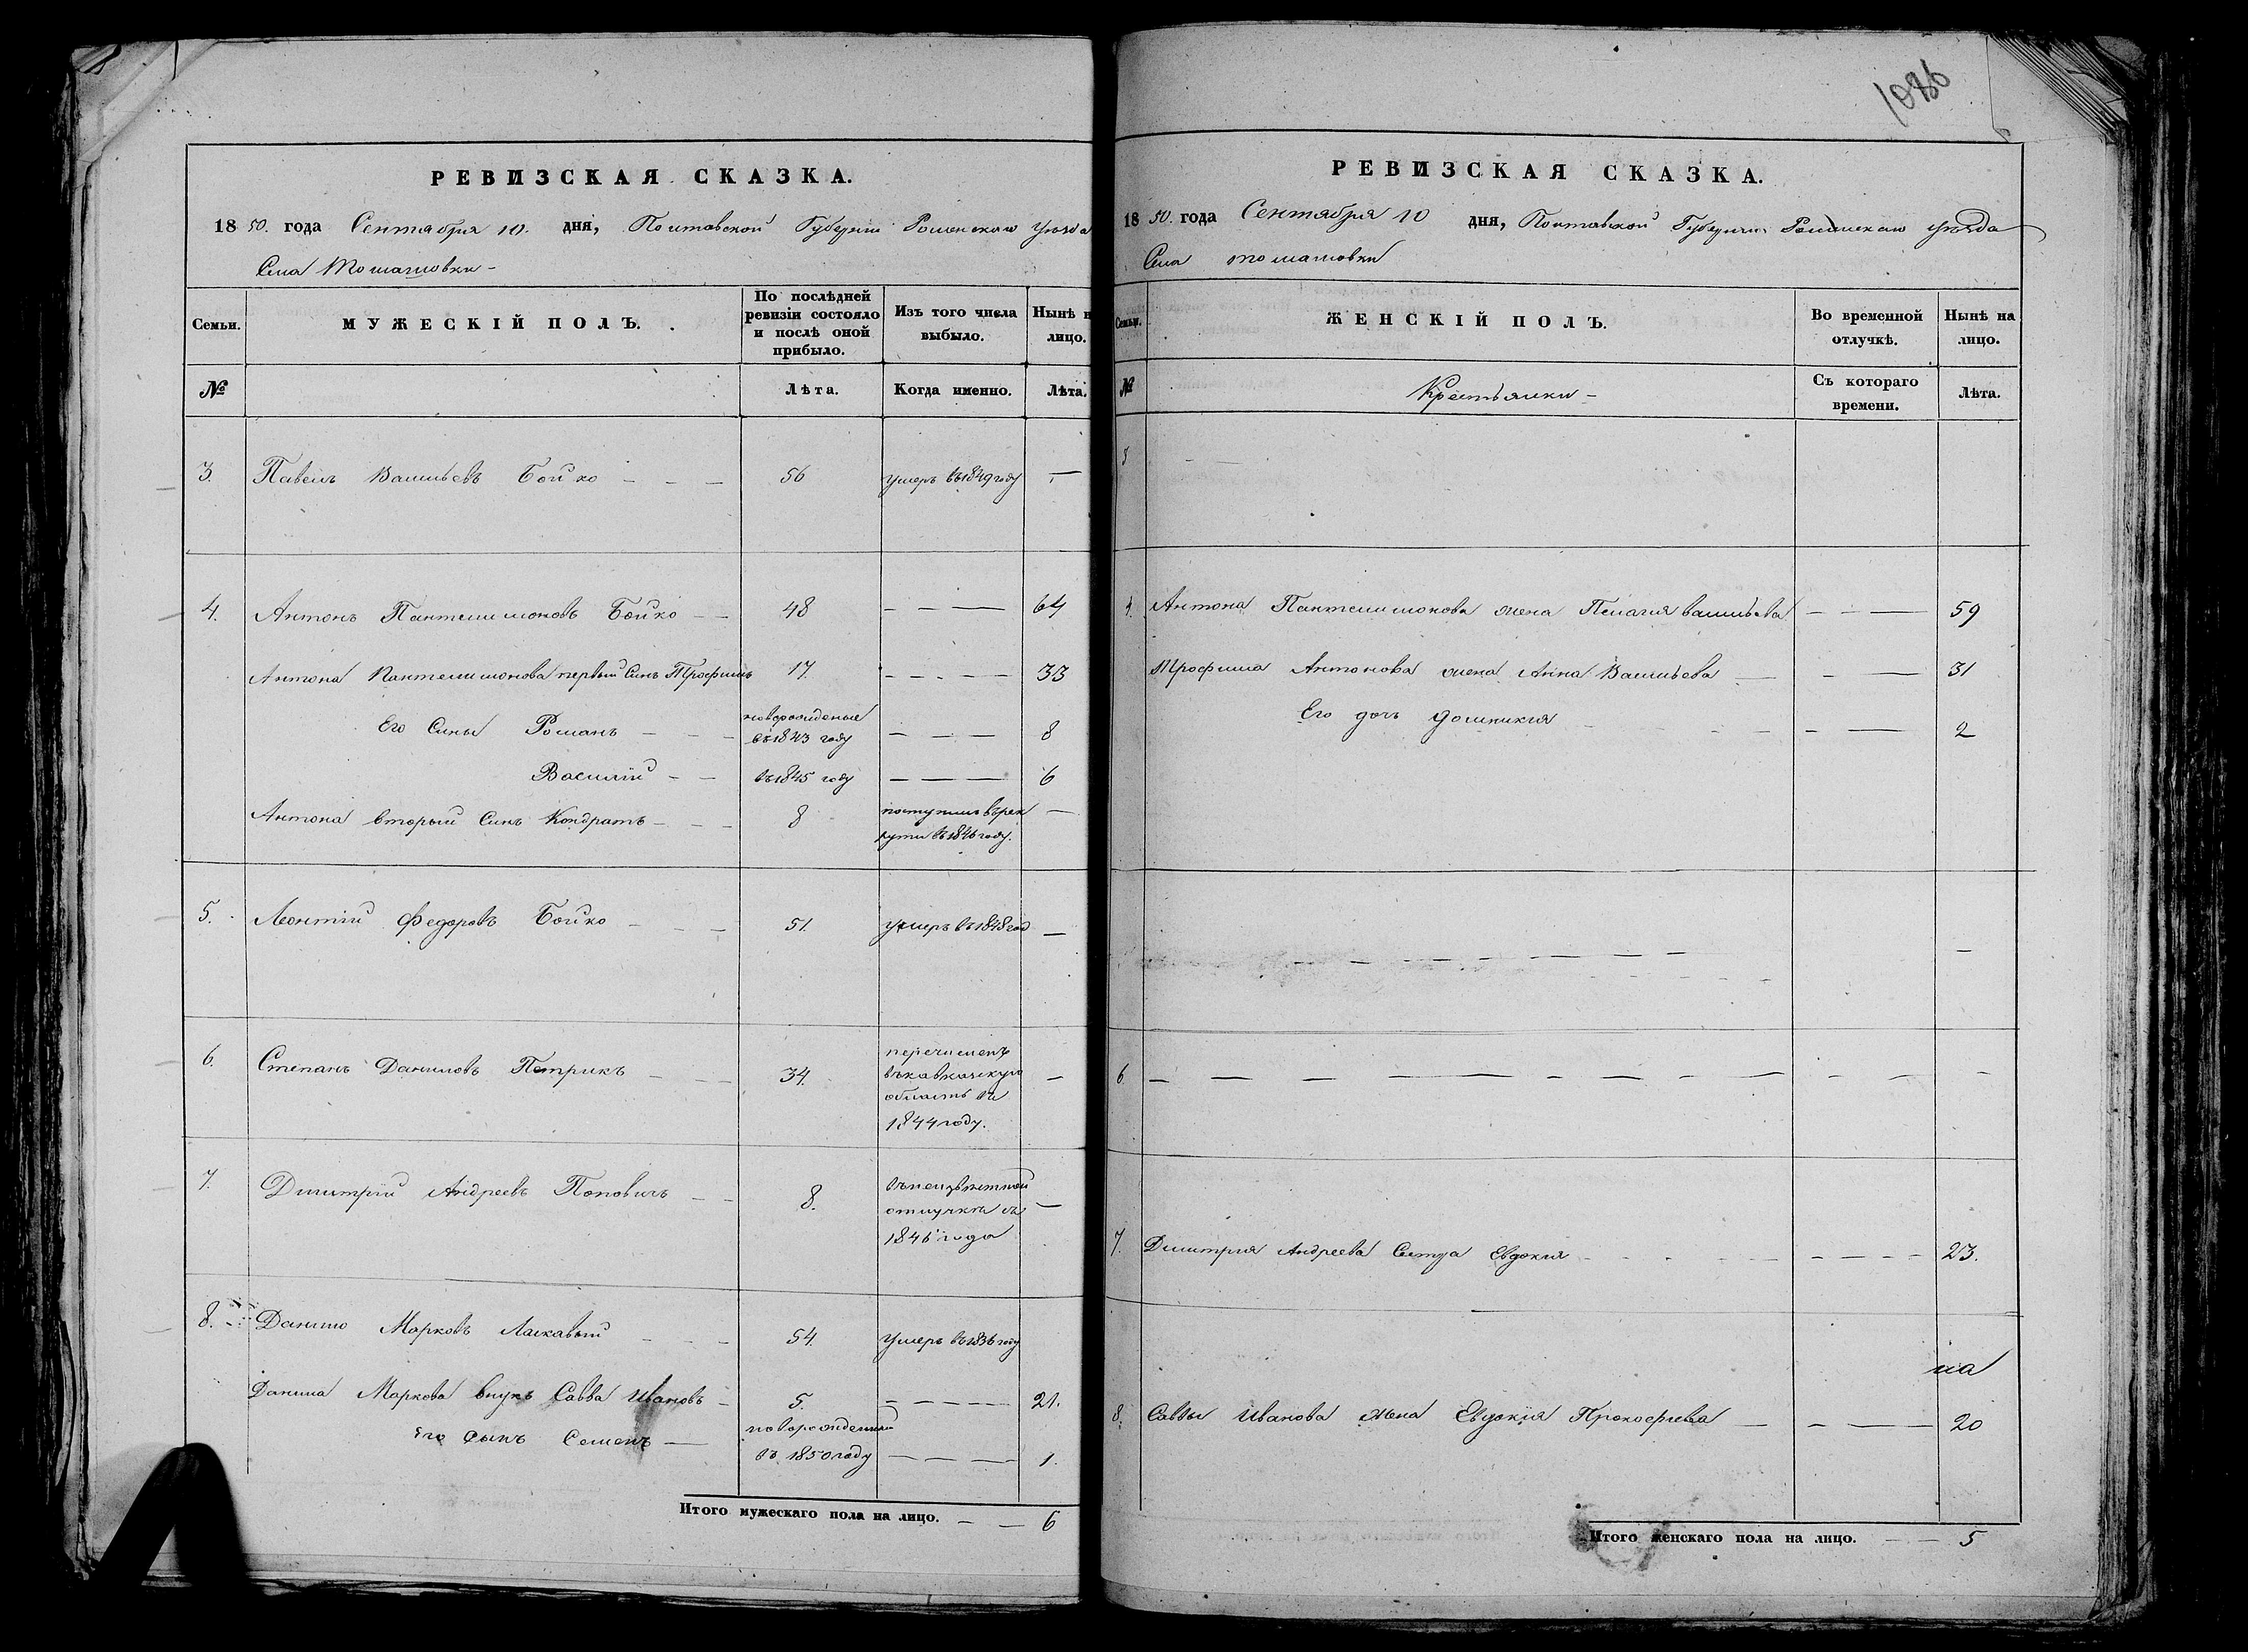 РЕВИЗСКАЯ СКАЗКА.
1850. года Сентября 10. дня, Полтавской Губерніи Роменскаго Уѣзда
Села Томашовки -
Семьи.
МУЖЕСКІЙ ПОЛЪ.
По послѣдней ревизіи состояло и послѣ оной прибыло.
Изъ того числа выбыло.
Нынѣ н лицо.
№
Лѣта.
Когда именно.
Лѣта.
3. Павелъ Васильевъ Бойко - - - 56 умеръ въ 1849 году —
4. Антонъ Пантелимоновъ Бойко - - 48 - - — 64
Антона Пантелимонова первый Синъ Трофимъ 17. - - - — 33
Его Сины Романъ - - - новорожденые въ 1843 году — - — 8
Василій - - въ 1845 году — — — 6
Антона вторый Синъ Кондратъ - - - 8 поступилъ въ рек
рути въ 1846 году. —
5. Леонтій Федоровъ Бойко - - - 51. умеръ въ 1848 год —
6. Степанъ Даниловъ Петрикъ - - - 34. перечисленъ
въ кавказскую
область въ
1844 году. —
7. Димитрій Андреевъ Поповичъ - - 8. въ неизвѣстной
отлучкѣ съ
1846 года —
8. Данило Марковъ Ласкавый - - - 54. умеръ въ 1836 году
Данила Маркова внукъ Савва Ивановъ - 5. - - - - — 21.
Его сынъ Семенъ — новорожденный
въ 1850 году — - — - 1.
Итого мужескаго пола на лицо. - — 6
1086
РЕВИЗСКАЯ СКАЗКА.
1850. года Сентября 10 дня, Полтавской Губерніи Роменскаго уѣзда
Села томашовки
Семьи.
ЖЕНСКІЙ ПОЛЪ.
Во временной отлучкѣ.
Нынѣ на лицо.
№
Крестьянки -
Съ котораго времени.
Лѣта.
3
4. Антона Пантелимонова жена Пелагия васильева - - — 59
Трофима Антонова жена Анна Васильева — - — 31
Его дочь Домникия - - - - — 2
6. — — — — - — - — - — - — -
7. Димитрия Андреева Сестра Евдокия - - - - - - - 23.
на
8. Саввы Иванова жена Евдокия Прокофиева — - — 20
Итого женскаго пола на лицо. — — 5